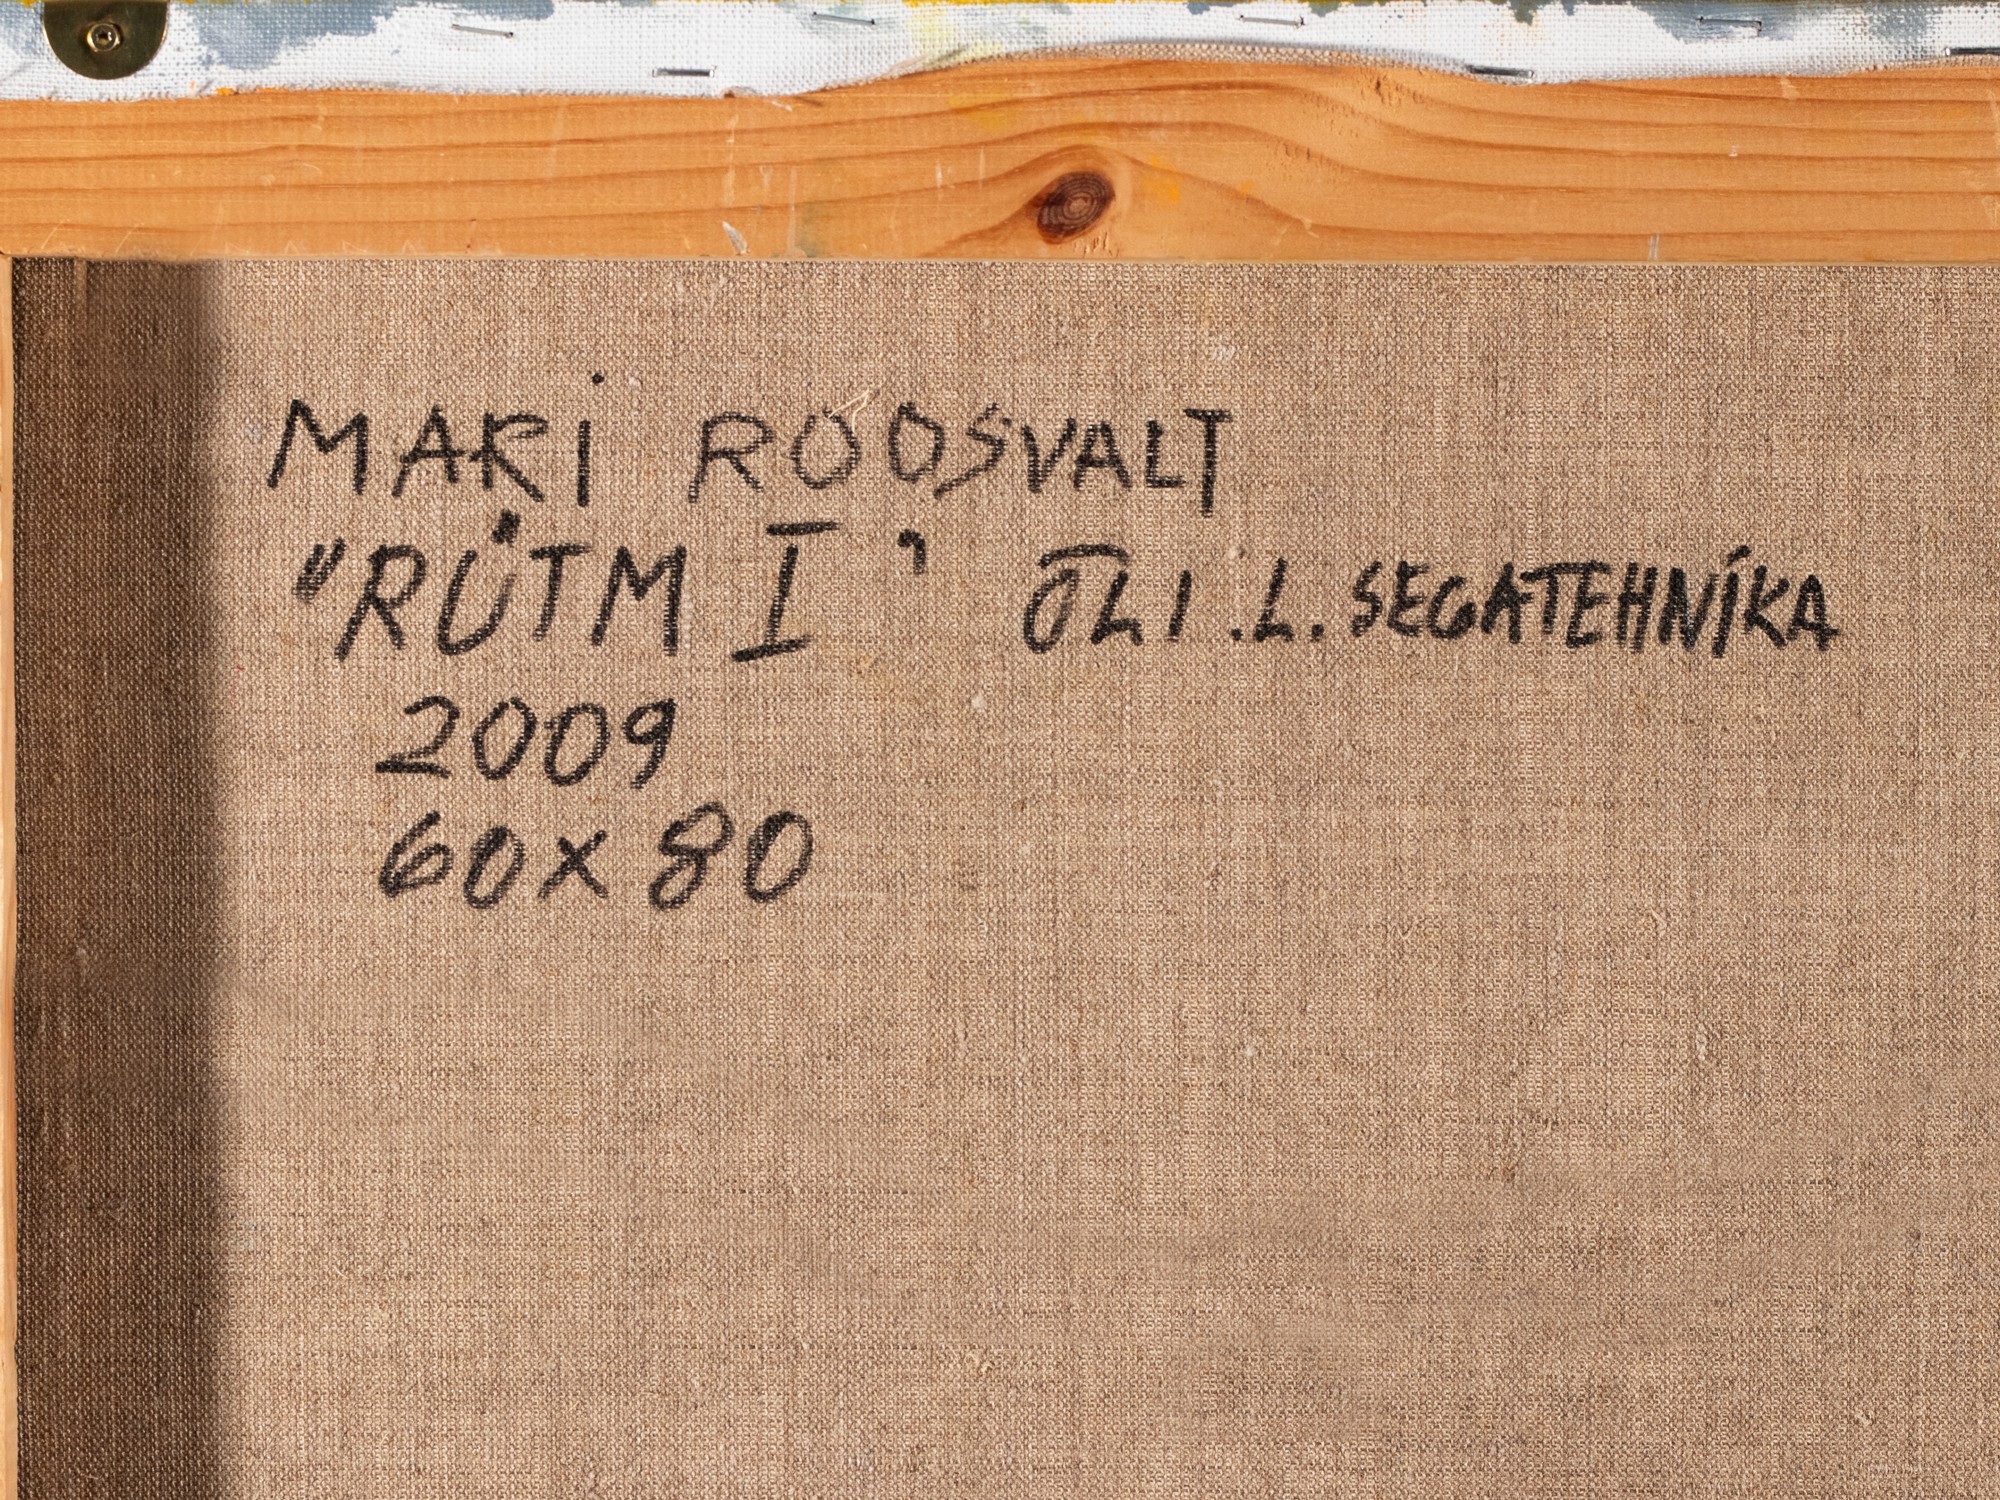 MARI ROOSVALT
"RÜTM I" ÕLI.L. SEGATEHNIKA
2009
60x80